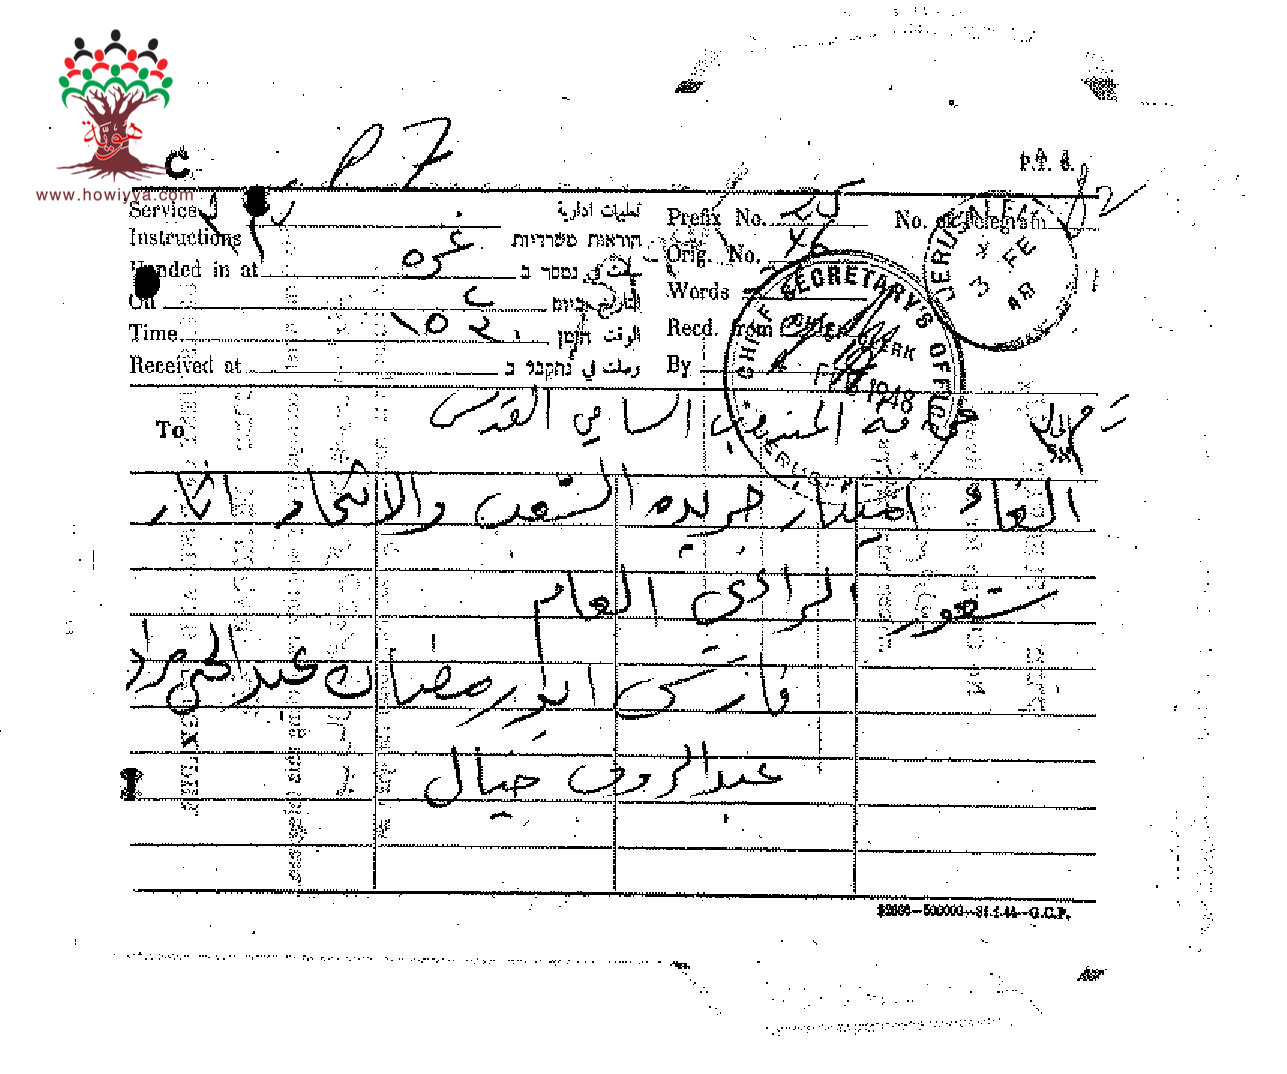 هوية
www.howiyya.com
C
P 7
P.T. 8.
82
Service تعليمات ادارية
Instructions הוראות משרדיות
Prefix No. 25
No. of Telegram
Handed in at غزه سلمت في נמסר ב
Orig. No.
On التاريخ ביום
Words
Time الوقت הזמן
Recd. from
Received at وصلت في נתקבל ב
By
JERUSALEM
3 FE
48
CHIEF SECRETARY'S OFFICE
CHIEF CLERK
1948
JERUSALEM
To
فخامة المندوب السامي القدس
الغاء امتياز جريده الشعب والاتحاد اثار
شعور الرأي العام
فارس ابو رمضان عبد الحي مراد
عبد الرؤوف خيال
G.C.P.